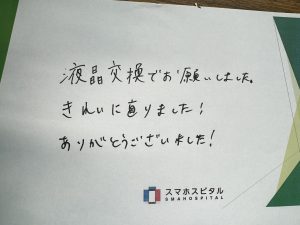 液晶交換でお願いしました。
きれいに直りました!
ありがとうございました!
スマホスピタル
SMAHOSPITAL